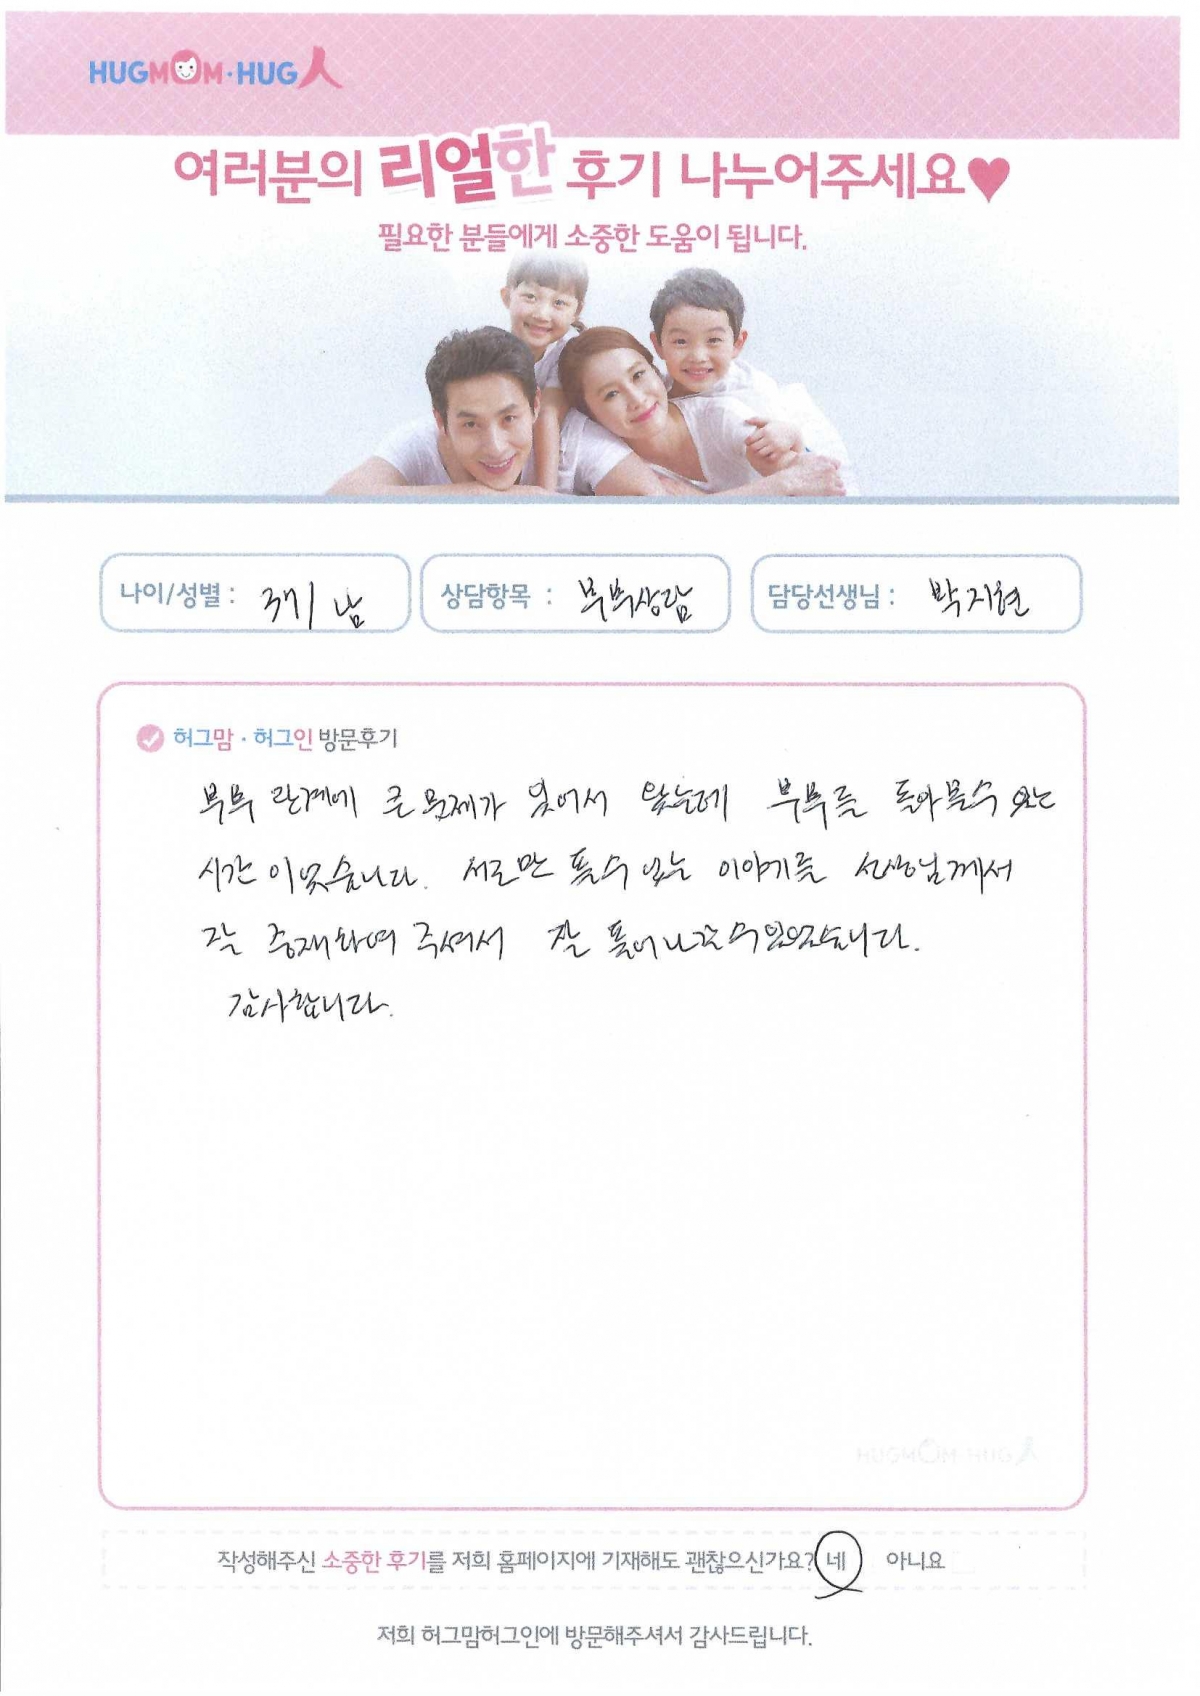 HUGMOM·HUG人
여러분의 리얼한 후기 나누어주세요♥
필요한 분들에게 소중한 도움이 됩니다.
나이/성별 : 37/남
상담항목 : 부부상담
담당선생님 : 박지현
허그맘·허그인 방문후기
부부 관계에 큰 문제가 있어서 왔는데 부부를 돌아볼수 있는
시간이었습니다. 서로만 풀수 없는 이야기를 선생님께서
잘 중재하여 주셔서 잘 풀어나갈 수 있었습니다.
감사합니다.
HUGMOM·HUG人
작성해주신 소중한 후기를 저희 홈페이지에 기재해도 괜찮으신가요? 네 아니요
저희 허그맘허그인에 방문해주셔서 감사드립니다.